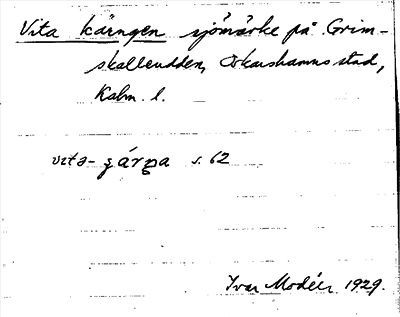 Vita käringen sjömärke på Grim-
skalleudden, Oskarshamns stad,
Kalm. l.
s. 62
Ivar Modéer 1929.